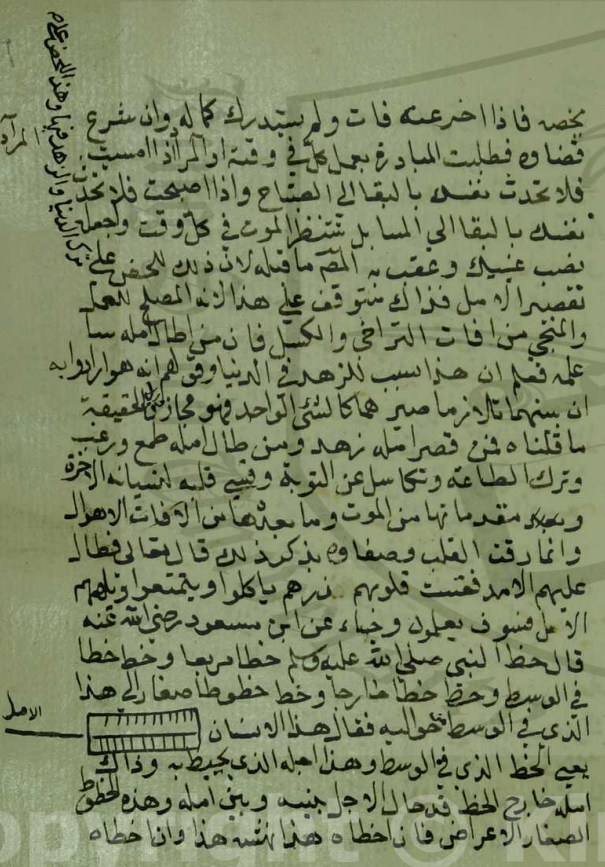 يخصه فاذا اخر عنه فات ولم يستدرك كماله وان شرع
قضاوه فطلبت المبادرة بعمل كل في وقته او المراد اذا امسيت
فلا تحدث نفسك بالبقا الى الصباح واذا اصبحت فلا تحدث
نفسك بالبقا الى المسا بل تنتظر الموت في كل وقت واجعله
نصب عينيك وعقب به المص ما قبله لان ذلك للحض على
تقصير الامل فذاك متوقف على هذا لانه المصلح للعمل
والمنجي من افات التراخي والكسل فان من اطال امله سا
عمله فعلم ان هذا سبب للزهد في الدنيا وقولهم انه هو ارادوا به
ان بينهما تلازما صيرهما كالشي الواحد فهو مجاز والحقيقة
ما قلناه فمن قصر امله زهد ومن طال امله طمع ورغب
وترك الطاعة وتكاسل عن التوبة وقسي قلبه لنسيانه الاخرة
مقدماتها من الموت وما بعدها من الافات الاهوال
وانما رقت القلب وصفاوه بذكر ذلك قال تعالى فطال
عليهم الامد فقست قلوبهم ذرهم ياكلوا ويتمتعوا ويلههم
الامل فسوف يعلمون وجاء عن ابن مسعود رضي الله عنه
قال خط النبي صلى الله عليه وسلم خطا مربعا وخط خطا
في الوسط وخط خطا خارجا وخط خطوطا صغارا الى هذا
الذي في الوسط حواليه فقال هذا الانسان
الامل
يعني الخط الذي في الوسط وهذا اجله الذي يحيط به وذاك
امله خارج الخط قد حال الاجل بينه وبين امله وهذه الخطوط
الصغار الاعراض فان اخطاه هذا نهشه هذا وان اخطاه
ترك الدنيا والزهد فيها وهذا للحض على
المراد